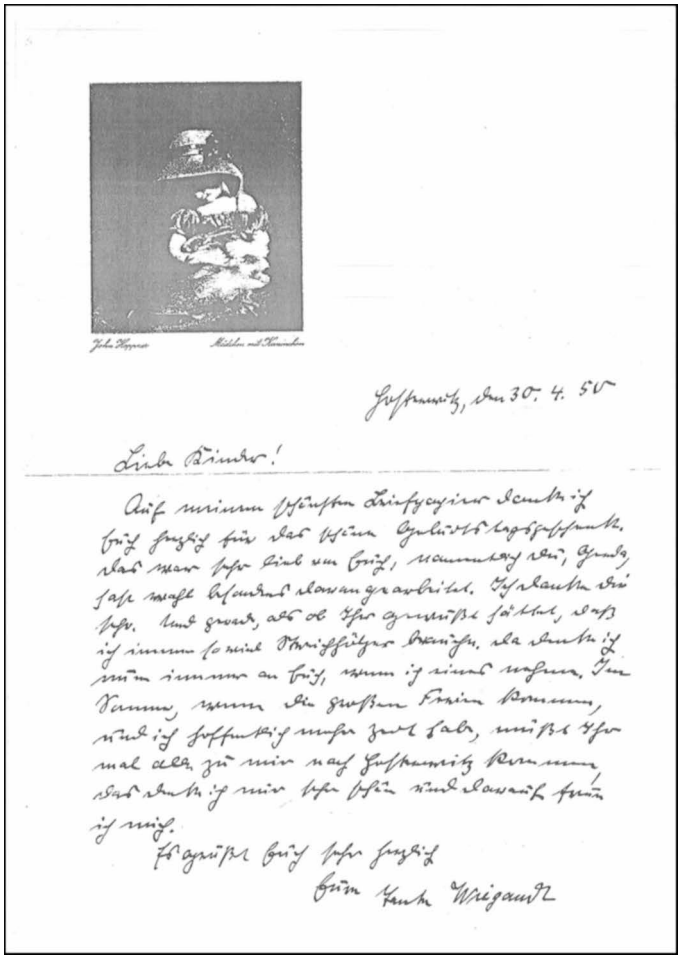 John Hoppner
Mädchen mit Kaninchen
Hosterwitz, den 30. 4. 50
Liebe Kinder!
Auf meinem schönsten Briefpapier danke ich
Euch herzlich für das schöne Geburtstagsgeschenk.
Das war sehr lieb von Euch, namentlich Du,
hast wohl besonders daran gearbeitet. Ich danke Dir
sehr. Und gerade, als ob Ihr gewußt hättet, daß
ich immer soviel Streichhölzer brauche. Da denke ich
nun immer an Euch, wenn ich eines nehme. Im
Sommer, wenn die großen Ferien kommen,
und ich hoffentlich mehr Zeit habe, müßt Ihr
mal alle zu mir nach Hosterwitz kommen,
das denke ich mir sehr schön und darauf freue
ich mich.
Es grüßt Euch sehr herzlich
Eure Tante Wiegandt